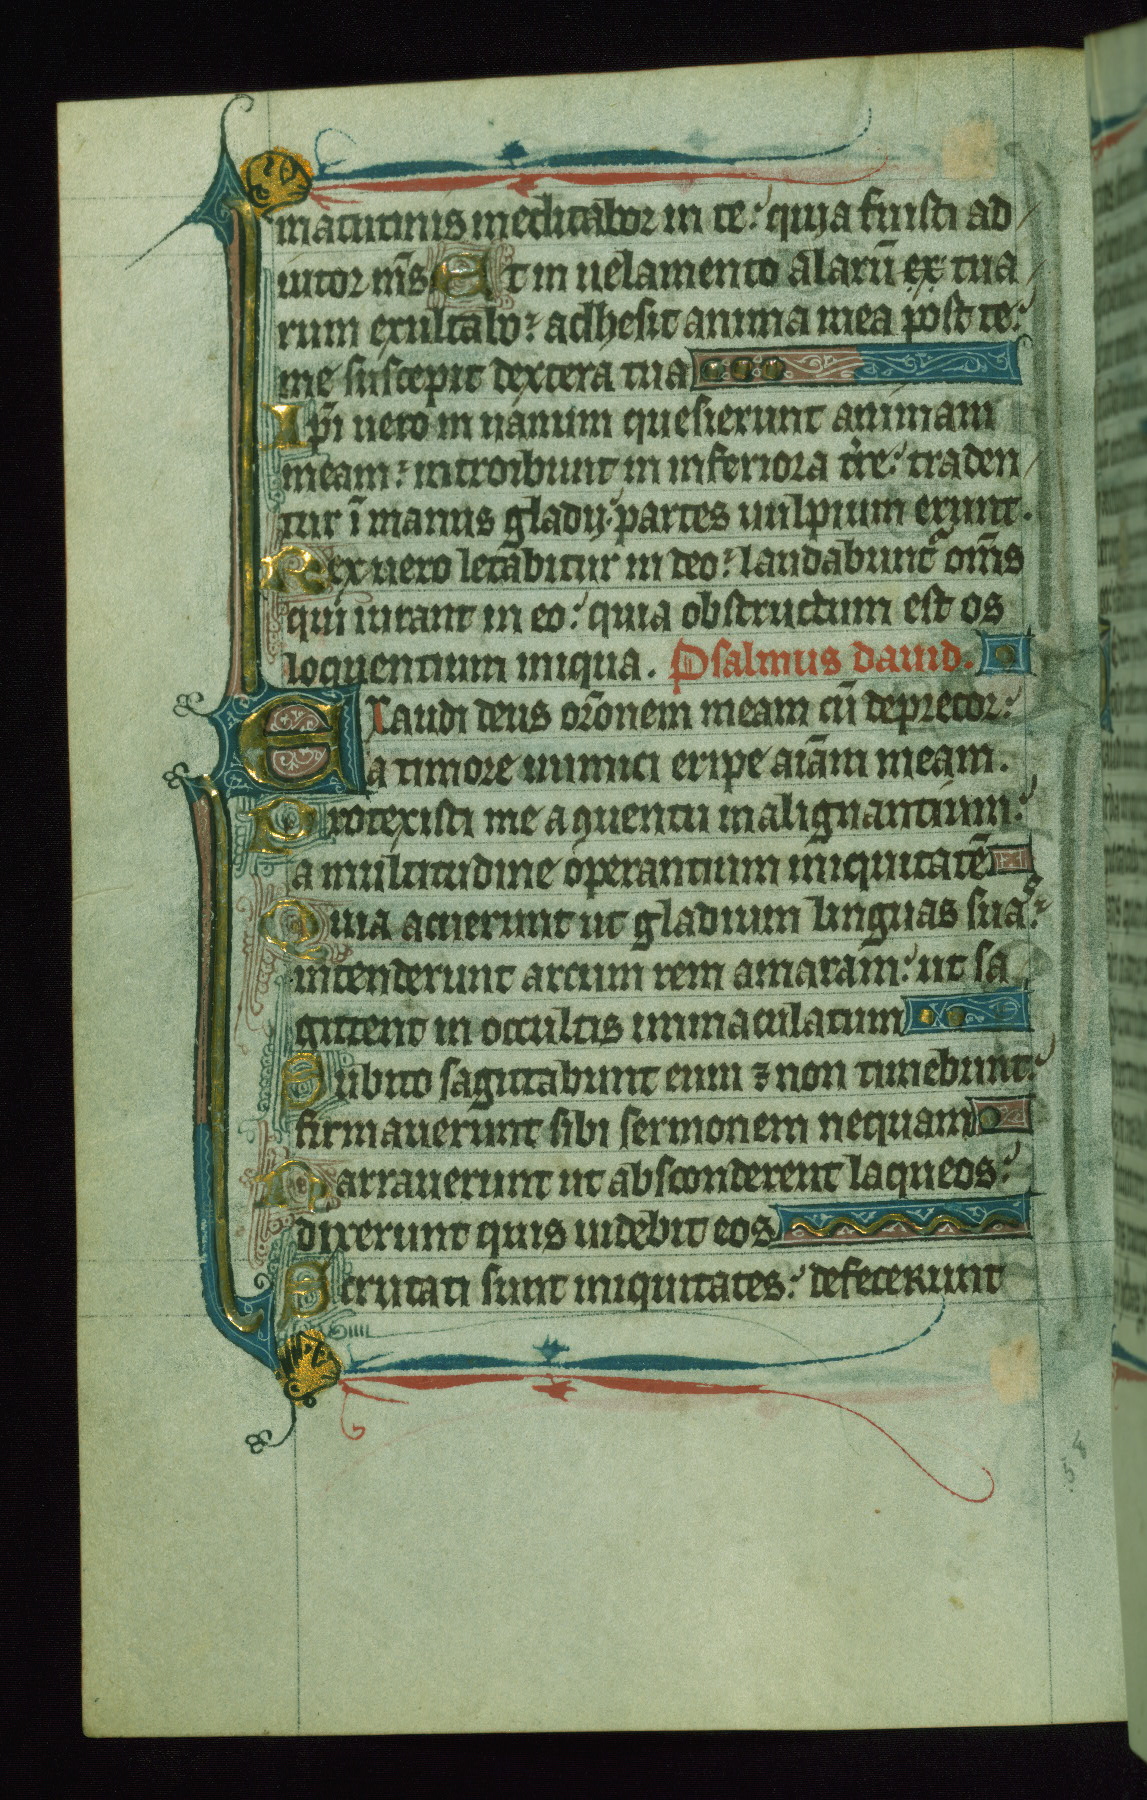 matutinis meditabor in te: quia fuisti ad
iutor m̄s Et in uelamento alarū ex tua
rum exultabo: adhesit anima mea post te:
me suscepit dextera tua
Ip̄i uero in uanum quesierunt animam
meam: introibunt in inferiora tr̄e: traden
tur ī manus gladij partes uulpium erunt.
Rex uero letabitur in deo: laudabunt᷑ om̄s
qui iurant in eo: quia obstructum est os
loquentium iniqua. Psalmus dauid.
Exaudi deus or̄onem meam cū deprecor:
a timore inimici eripe aīam meam.
Protexisti me a quentu malignantium:
a multitudine operantium iniquitatē
Quia acuerunt ut gladium linguas sua s:
intenderunt arcum rem amaram: ut sa
gittent in occultis immaculatum
Subito sagittabunt eum ⁊ non timebunt:
firmauerunt sibi sermonem nequam
Narrauerunt ut absconderent laqueos:
dixerunt quis uidebit eos
Scrutati sunt iniquitates: defecerunt